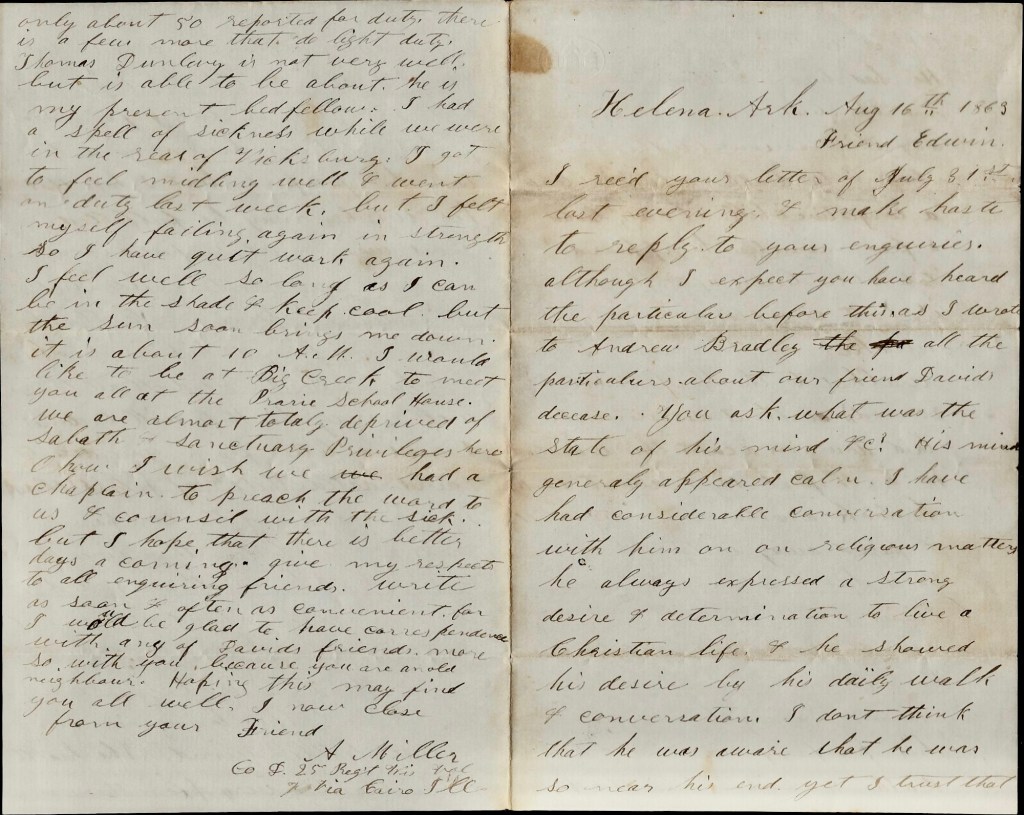 Helena. Ark. Aug 16th 1863
Friend Edwin.
I rec'd your letter of July 31st
last evening. & make haste
to reply to your enquiries.
although I expect you have heard
the particular before this. as I wrote
to Andrew Bradley the all the
particulurs about our friend Davids
decease. You ask what was the
state of his mind &c? His mind
generaly appeared calm. I have
had considerable conversation
with him on on religious matters
he always expressed a strong
desire & determination to live a
Christian life. & he showed
his desire by his daily walk
& conversation. I dont think
that he was aware that he was
so near his end yet I trust that
only about 50 reported for duty. there
is a few more that do light duty.
Thomas Dunlevy is not very well.
but is able to be about. he is
my present bedfellow. I had
a spell of sickness while we were
in the rear of Vicksburg. I got
to feel midling well & went
on duty last week. but I felt
myself failing again in strength
so I have quit work again.
I feel well so long as I can
be in the shade & keep cool but
the sun soon brings me down.
it is about 10 A.M. I would
like to be at Big Creek to meet
you all at the Prarie School House.
we are almost totaly deprived of
Sabath & sanctuary Privileges here
O how I wish we we had a
chaplain to preach the word to
us & counsil with the sick.
but I hope that there is better
days a coming. give my respects
to all enquiring friends. write
as soon & often as convenient. for
I would be glad to have correspondence
with any of Davids friends. more
so with you, because you are an old
neighbour. Hoping this may find
you all well. I now close
from your Friend
A Miller
Co D. 25 Regt Wis Vol
Via Cairo Ill